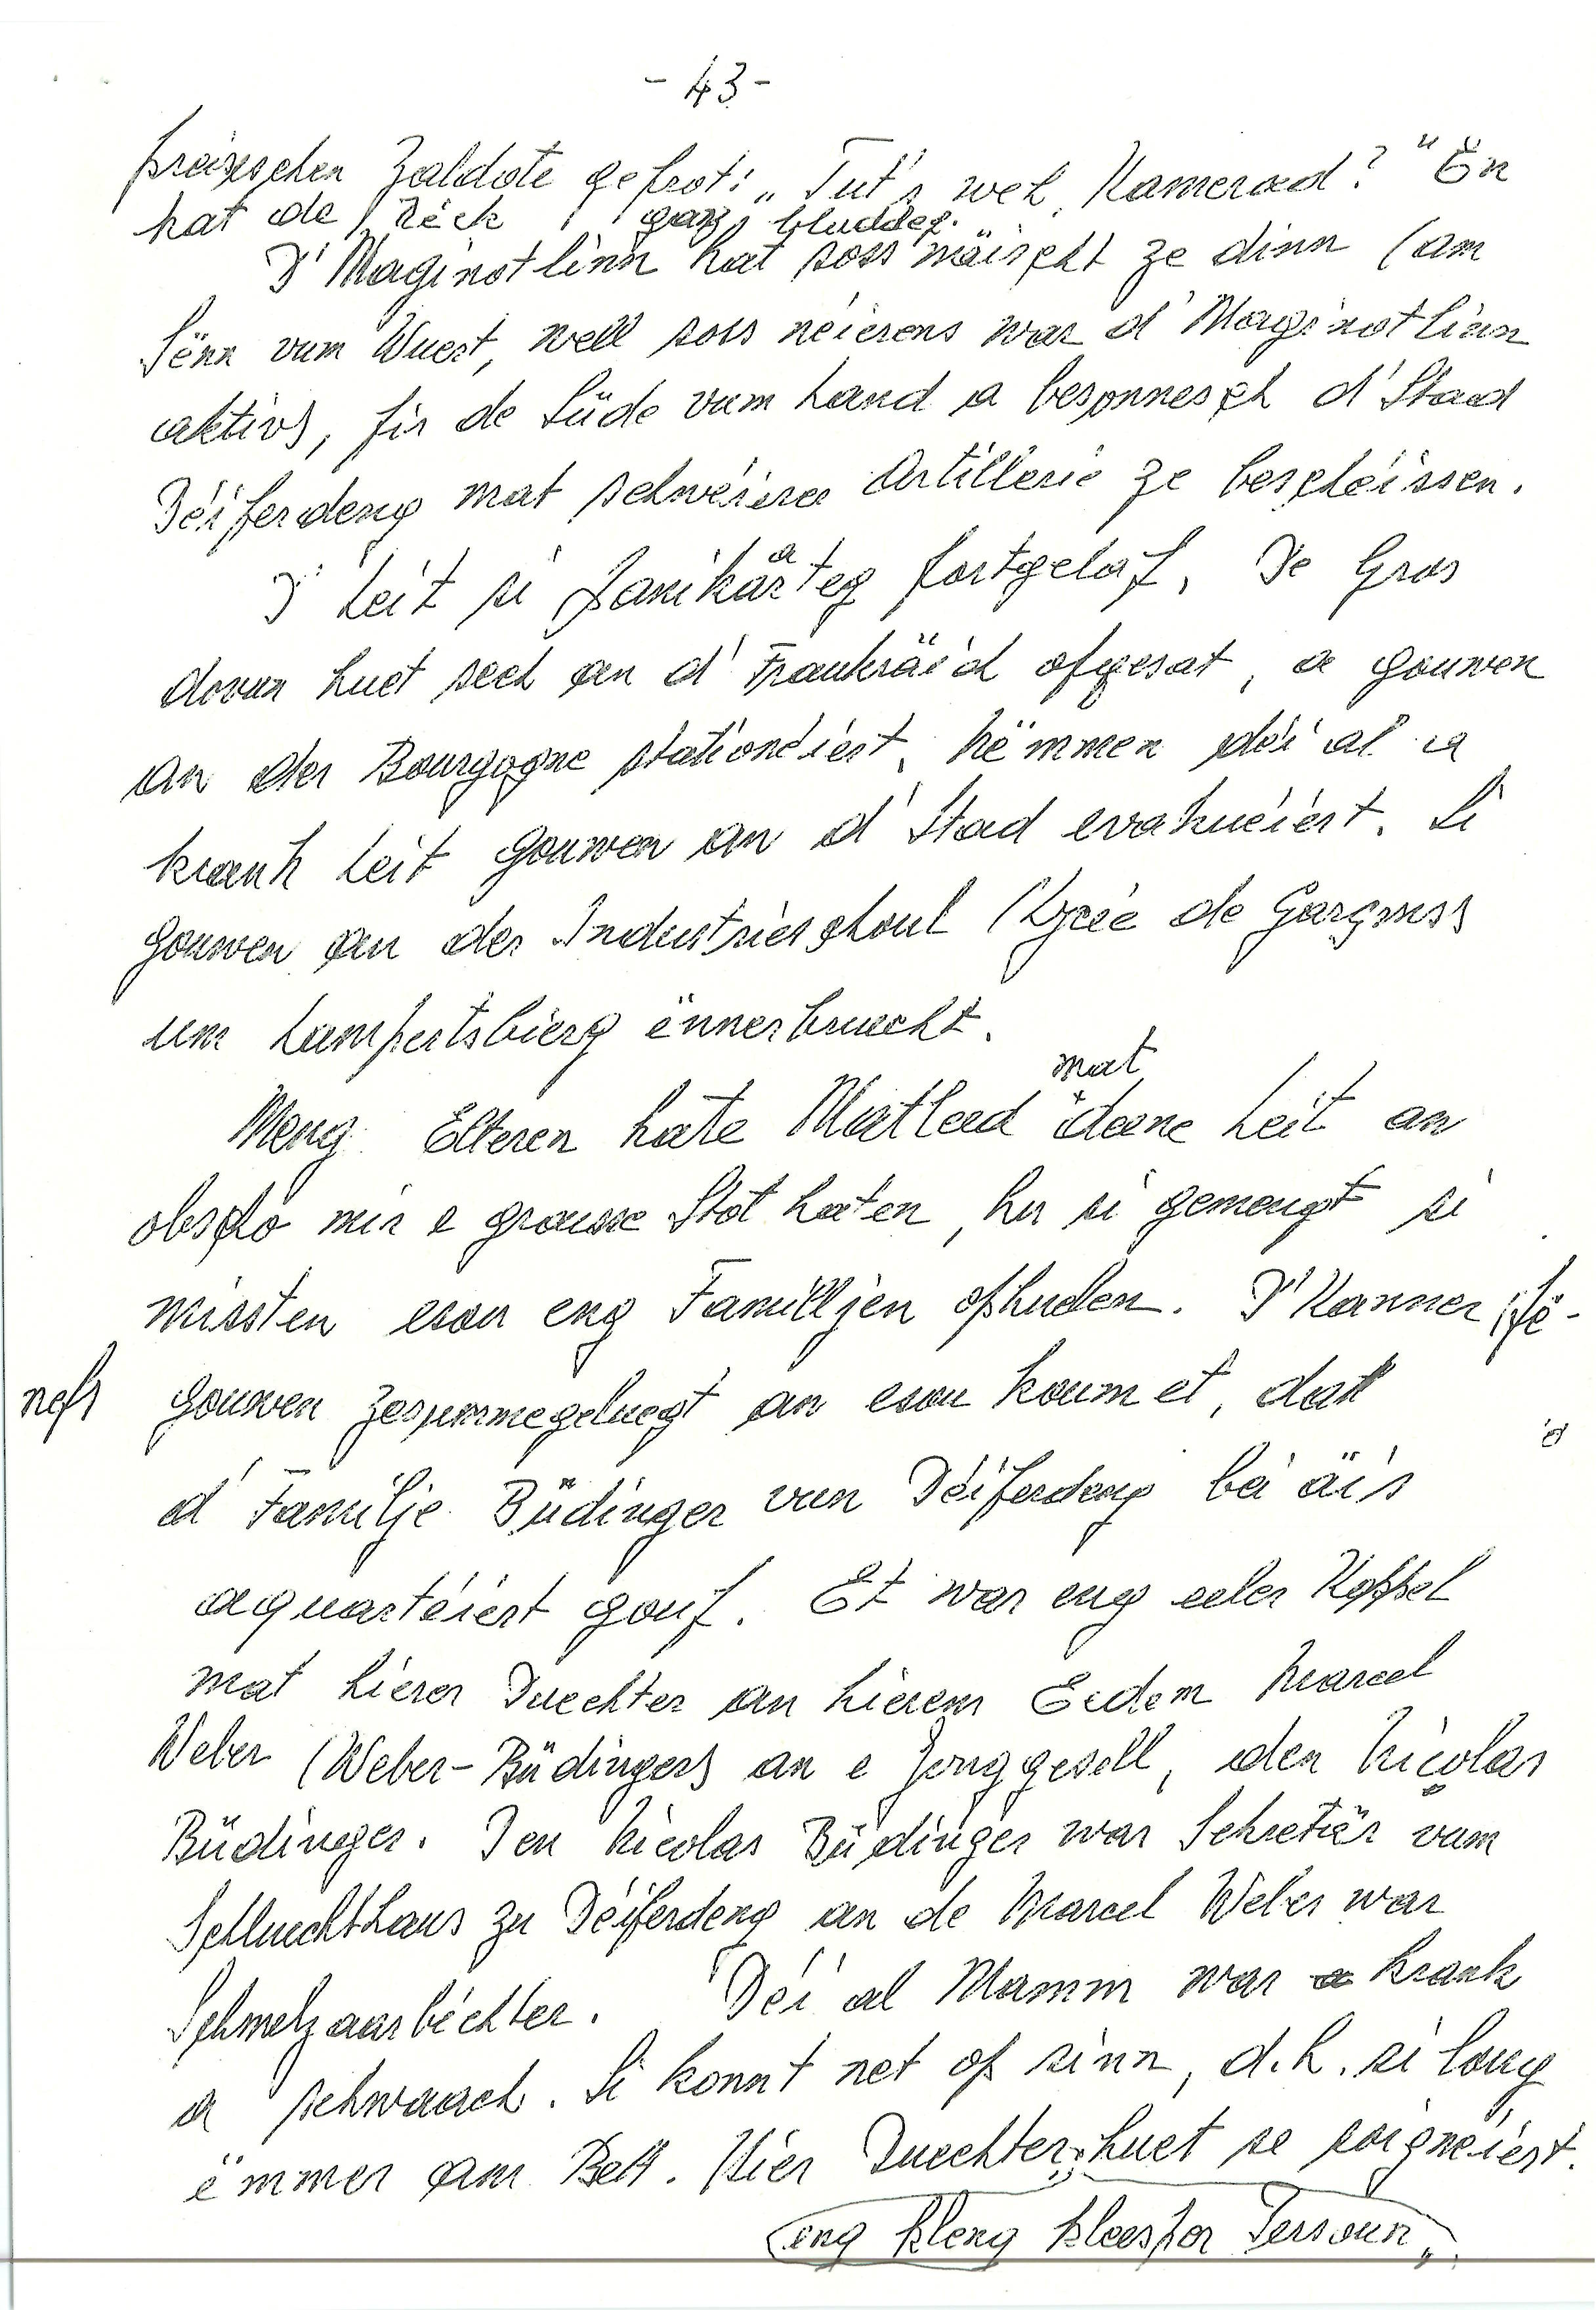 - 43 -
preisschen Zaldote gefrot: „Tut's weh, Kamerad?" Ën
hat de Réck ganz bluddeg.
D'Maginotlinn hat soss näischt ze dinn (am
Sënn vum Wuert, well soss néierens war d'Maginotlinn
aktiv), fir de Süde vum Land a besonnesch d'Stad
Déiferdeng mat schwéierer Artillerie ze beschéissen.
D'Leit si panikaarteg fortgelaf. De Gros
dovun huet sech an d'Frankräich ofgesat, a gouwen
an der Bourgogne stationéiert. Nëmmen déi al a
krank Leit gouwen an d'Stad evakuéiert. Si
gouwen an der Industrieschoul (Lycée de Garçons)
um Lampertsbierg ënnerbruecht.
Meng Elteren hate Matleed mat deene Leit an
obscho mir e grousse Stot haten, hu si gemengt si
missten esou eng Familljen ophuelen. D'Kanner
gouwen zesummegeluegt an esou koum et, datt
d'Familje Büdinger vun Déiferdeng bei äis
aquartéiert gouf. Et war eng eeler Koppel
mat hierer Duechter an hierem Eedem Marcel
Weber (Weber-Büdinger) an e Jonggesell, den Nicolas
Büdinger. Den Nicolas Büdinger war Sekretär vum
Schluechthaus zu Déiferdeng an de Marcel Weber war
Schmelzaarbéchter. Déi al Mamm war krank
a schwaach. Si konnt net op sinn, d.h. si loug
ëmmer am Bett. Hier Duechter, huet se soignéiert.
eng kleng kleesper Persoun,